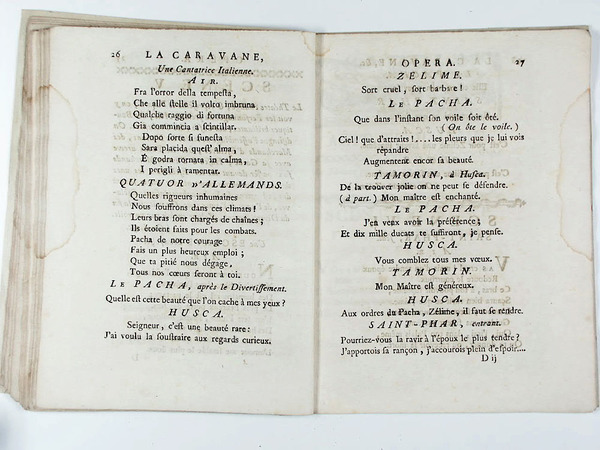 26 LA CARAVANE,
Une Cantatrice Italienne.
AIR.
Fra l'orror della tempesta,
Che alle stelle il volto imbruna,
Qualche raggio di fortuna
Gia commincia a scintillar.
Dopo sorte si funesta
Sara placida quest' alma,
É godra tornata in calma,
I perigli à ramentar.
QUATUOR D'ALLEMANDS.
Quelles rigueurs inhumaines
Nous souffrons dans ces climats!
Leurs bras sont chargés de chaînes;
Ils étoient faits pour les combats.
Pacha de notre courage
Fais un plus heureux emploi;
Que ta pitié nous dégage,
Tous nos cœurs seront à toi.
LE PACHA, après le Divertissement.
Quelle est cette beauté que l'on cache à mes yeux?
HUSCA.
Seigneur, c'est une beauté rare:
J'ai voulu la soustraire aux regards curieux.
OPERA. 27
ZÉLIME.
Sort cruel, sort barbare!
LE PACHA.
Que dans l'instant son voile soit ôté.
(On ôte le voile.)
Ciel! que d'attraits!....les pleurs que je lui vois
répandre
Augmentent encor sa beauté.
TAMORIN, à Husca.
De la trouver jolie on ne peut se défendre.
(à part.) Mon maître est enchanté.
LE PACHA.
J'en veux avoir la préférence;
Et dix mille ducats te suffiront, je pense.
HUSCA.
Vous comblez tous mes vœux.
TAMORIN.
Mon Maître est généreux.
HUSCA.
Aux ordres du Pacha, Zélime, il faut se rendre.
SAINT-PHAR, entrant.
Pourriez-vous la ravir à l'époux le plus tendre?
J'apportois sa rançon, j'accourois plein d'espoir....
D ij